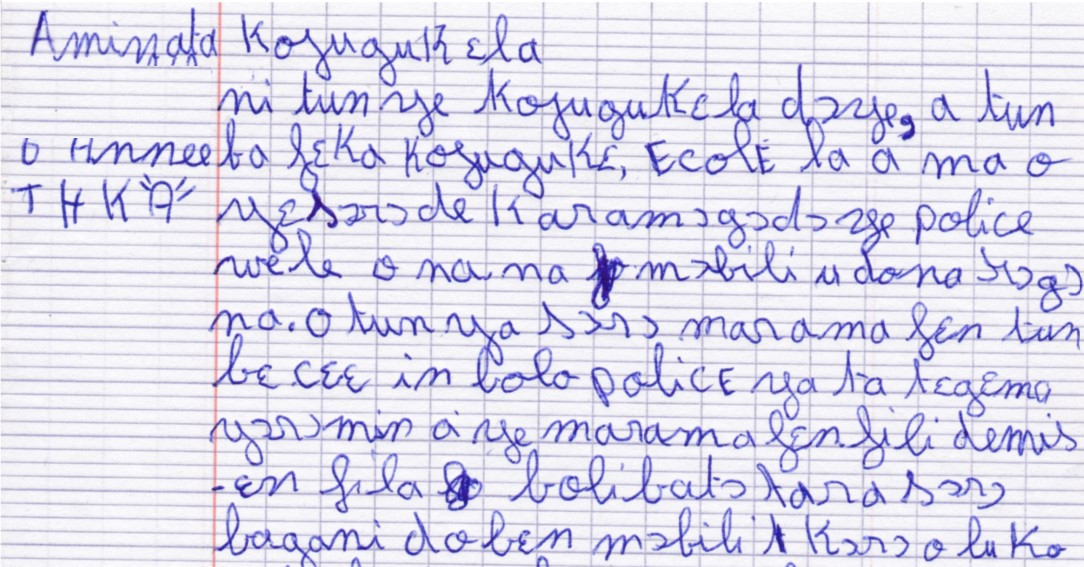 Aminata Kojugukɛla
ni tun ye Kojugukɛla dɔ ye, a tun
o Annee ba fɛ ka Kojugukɛ, EcolE la a ma o
yɛ sɔrɔ de karamɔgɔdɔ ye police
wele o na na mɔbili u dona sɔgɔ
na. o tun ya sɔrɔ marama fɛn tun
bɛ cɛɛ in bolo policE ya ta tɛgɛma
yɔrɔ min a ye marama fɛn fili demis
-ɛn fila boli batɔ tara sɔrɔ
bagani do bɛn mɔbili kɔrɔ o lu ko